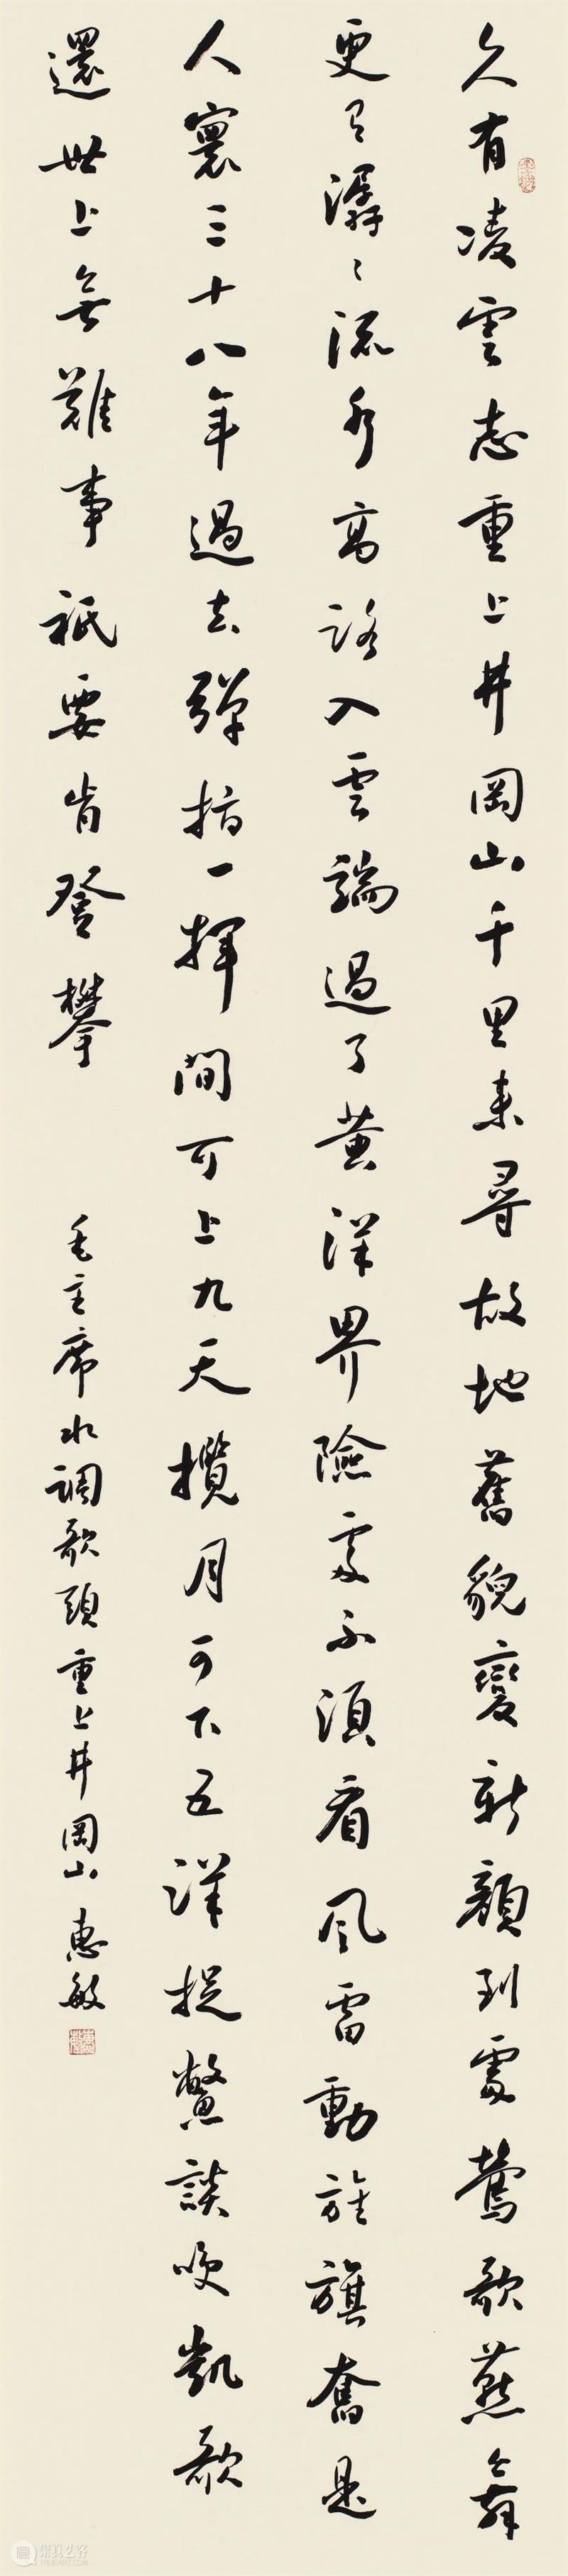 久有凌雲志重上井岡山千里来尋故地舊貌變新顏到處鶯歌燕舞
更有潺〻流水高路入雲端過了黄洋界險處不須看风雷動旌旗奮是
人寰三十八年過去彈指一揮間可上九天攬月可下五洋捉鱉談咲凱歌
還世上無難事祇要肯登攀
毛主席水調歌頭重上井岡山 惠敏
崇真艺客
TRUEART.COM